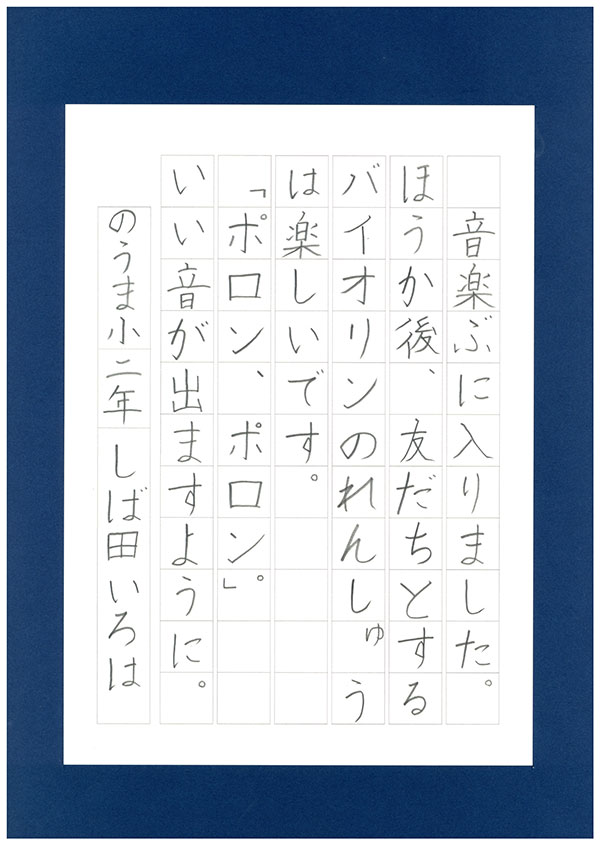 音楽ぶに入りました。
ほうか後、友だちとする
バイオリンのれんしゅう
は楽しいです。
「ポロン、ポロン」。
いい音が出ますように。
のうま小二年しば田いろは